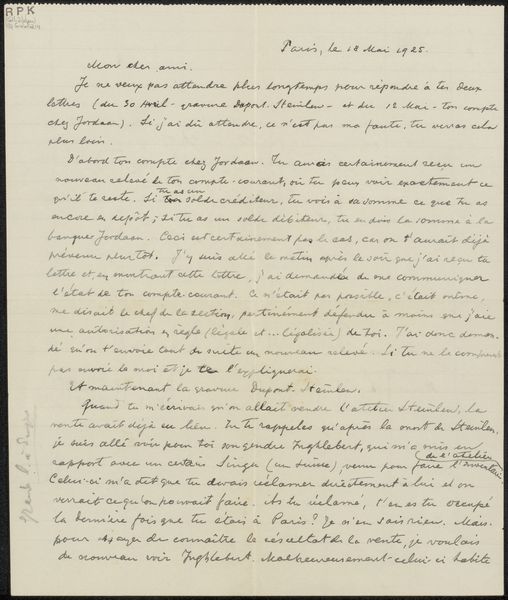 RPK
Paris, le 18 Mai 1925.
Mon cher ami.
Je ne veux pas attendre plus longtemps pour répondre à tes deux
lettres (du 30 Avril - gravure Dupont-Steinlen - et du 12 Mai - ton compte
chez Jordaan). Si j'ai dû attendre, ce n'est pas ma faute, tu verras cela
plus loin.
D'abord ton compte chez Jordaan. Tu auras certainement reçu un
nouveau relevé de ton compte-courant, où tu peux voir exactement ce
qu'il te reste. Si tu as un solde créditeur, tu vois à la somme ce que tu as
encore en dépôt; si tu as un solde débiteur, tu en dois la somme à la
banque Jordaan. Ceci est certainement pas le cas, car on t'aurait déjà
prévenu plus tôt. J'y suis allé le matin après le soir que j'ai reçu ta
lettre et, en montrant cette lettre, j'ai demandé de me communiquer
l'état de ton compte-courant. Ce n'était pas possible, c'était même,
me disait le chef de la section, pertinément défendu à moins que j'aie
une autorisation en règle (légale et ... légalisée) de toi. J'ai donc deman-
dé qu'on t'envoie tout de suite un nouveau relevé. Si tu ne le comprends
pas envoie le moi et je te l'expliquerai.
Et maintenant la gravure Dupont-Steinlen.
Quand tu m'écrivais qu'on allait vendre l'atelier Steinlen, la
vente avait déjà eu lieu. Tu te rappelles qu'après la mort de Steinlen,
je suis allé voir pour toi son gendre Inghlebert, qui m'a mis en
rapport avec un certain Singu (un Suisse) venu pour faire l'inventaire
de l'atelier
Celui-ci m'a dit que tu devais réclamer directement à lui et on
verrait ce qu'on pouvait faire. As-tu réclamé, t'en es tu occupé
la dernière fois que tu étais à Paris? Je n'en sais rien. Mais
pour essayer de connaître le résultat de la vente, je voulais
de nouveau voir Inghlebert. Malheureusement celui-ci habite